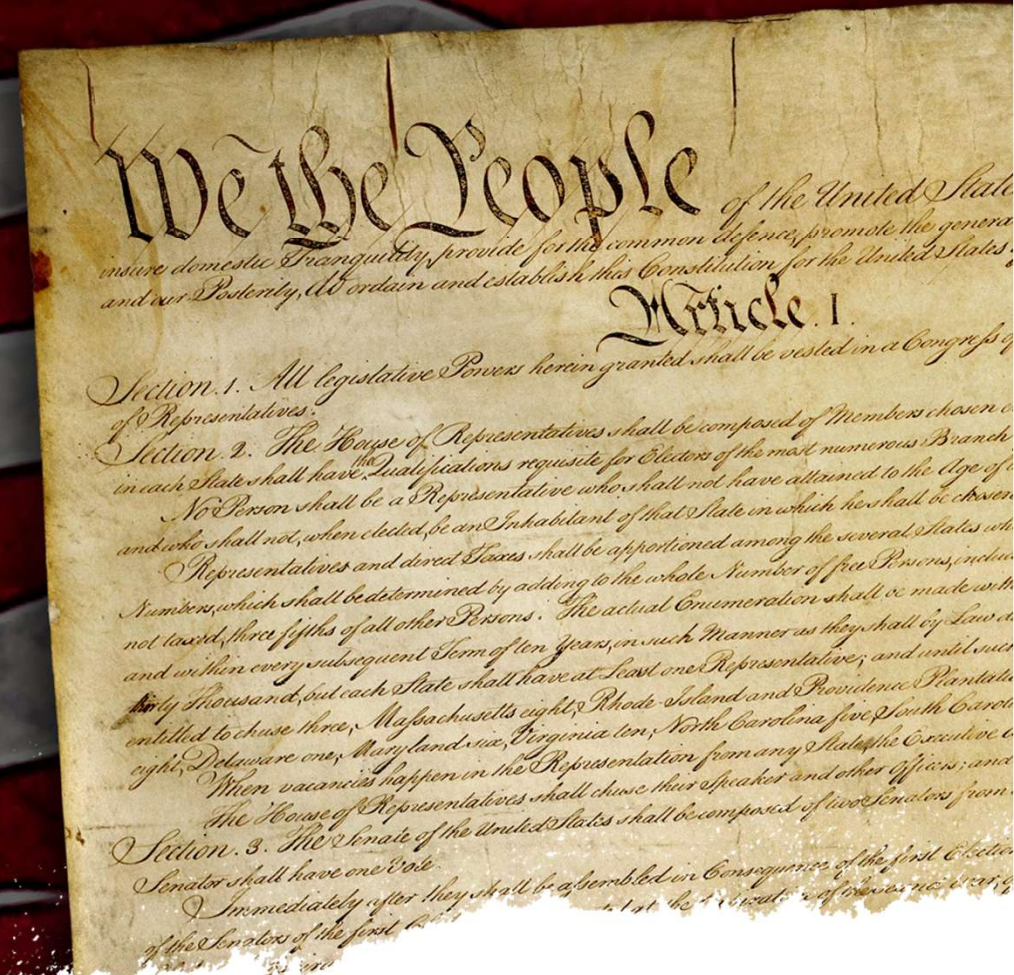 We the People of the United State
insure domestic Tranquility, provide for the common defence, promote the genera
and our Posterity, do ordain and establish this Constitution for the United States
Article. I.
Section. 1. All legislative Powers herein granted shall be vested in a Congress o
of Representatives.
Section. 2. The House of Representatives shall be composed of Members chosen e
in each State shall have the Qualifications requisite for Electors of the most numerous Branch
No Person shall be a Representative who shall not have attained to the Age of
and who shall not, when elected, be an Inhabitant of that State in which he shall be chosen
Representatives and direct Taxes shall be apportioned among the several States wh
Numbers, which shall be determined by adding to the whole Number of free Persons, includ
not taxed, three fifths of all other Persons. The actual Enumeration shall be made
and within every subsequent Term of ten Years, in such Manner as they shall by Law
thirty Thousand, but each State shall have at Least one Representative; and until suc
entitled to chuse three, Massachusetts eight, Rhode-Island and Providence Plantati
eight, Delaware one, Maryland six, Virginia ten, North Carolina five, South Carol
When vacancies happen in the Representation from any State, the Executive
The House of Representatives shall chuse their Speaker and other Officers; and
Section. 3. The Senate of the United States shall be composed of two Senators from
Senator shall have one Vote.
Immediately after they shall be assembled in Consequence of the first Election
of the Senators of the first